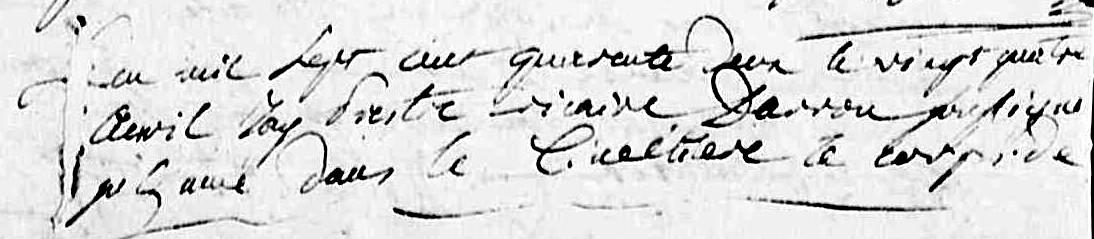 Lan mil sept cent quarente deux le vingt quatre
avril Jay prestre vicaire Darrou soussigné
inhumé dans le Cimetiere le corps de